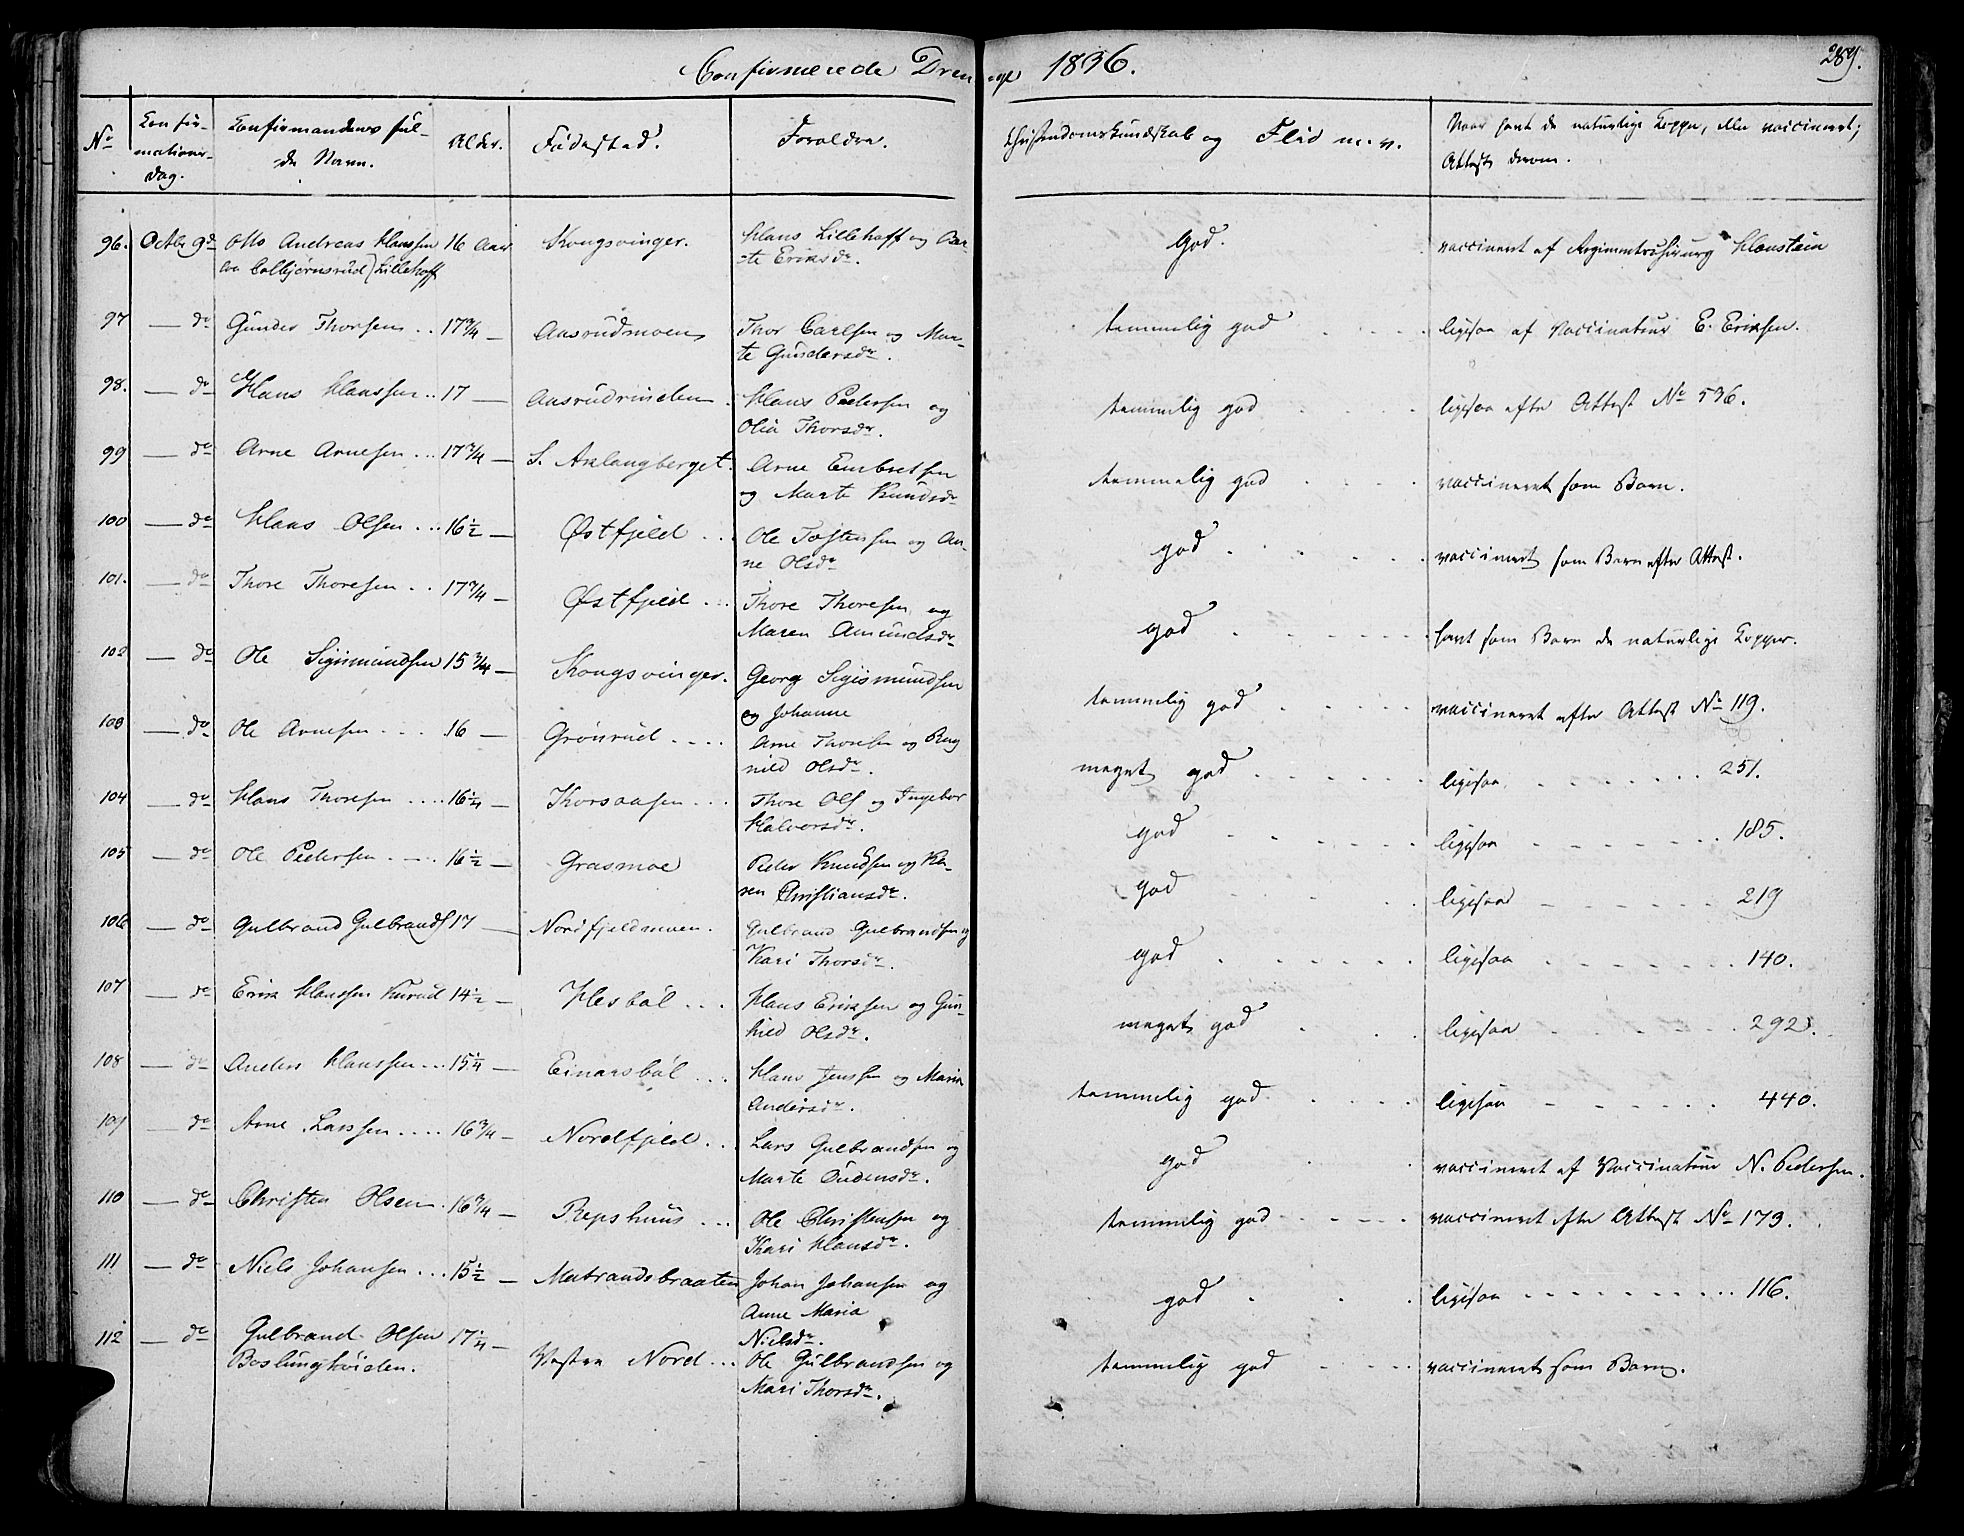 Confirmerede Drenge 1836. 289.
No Confirmations-dag. Confirmandens fulde Navn. Alder. Fødested. Forældre. Christendomskundskab og Flid m.v. Naar havt de naturlige Kopper, eller vaccineret; Attest derom.
96. Octbr 9de Otto Andreas Hanssen 16 Aar Kongsvinger. Hans Lillehoff og Ber- God. vaccineret af Regimentschirurg Hanstein
Lillehoff -te Eriksdr.
97 — do Gunder Thorsen .. 17 3/4 — Aasrudmoen Thor Carlsen og Mar- temmelig god ligesaa af Vaccinateur E. Eriksen.
te Gundersdr.
98. — do Hans Hanssen .. 17 — Aasrudvinden Hans Pedersen og temmelig god ligesaa efter Attest No 536.
Olia Thorsdr.
99 — do Arne Arnesen ... 17 3/4 — S. Aslangberget. Arne Embretsen temmelig god vaccineret som Barn.
og Marte Knudsdr
100 — do Hans Olsen ... 16 1/2 — Østfjeld ... Ole Tostensen og An- god vaccineret som Barn efter Attest.
ne Olsdr
101. — do Thore Thoresen .. 17 3/4 — Østfjeld ... Thore Thoresen og god havt som Barn de naturlige Kopper.
Maren Amundsdr
102 — do Ole Sigismundsen 15 3/4 — Kongsvinger. Georg Sigismundsen temmelig god vaccineret efter Attest No 119.
og Johanne
103 — do Ole Arnesen .... 16 — Grønrud .... Arne Thoresen og Rag meget god ligesaa 251.
nild Olsdr.
104 — do Hans Thoresen .... 16 1/4 — Korsaasen ... Thore Ols og Ingebor god ligesaa 185.
Halvorsdr.
105 — do Ole Pedersen .... 16 1/2 — Grasmoe Peder Knudsen og Ka- god ligesaa 219
ren Christiansdr.
106 — do Gulbrand Gulbrands 17 — Nordfjeldmoen. Gulbrand Gulbrandsen og god ligesaa 140.
Kari Thorsdr.
107 — do Erik Hanssen 14 1/2 — Hesbøl ... Hans Eriksen og Gun- meget god ligesaa 292.
hild Olsdr.
108 — do Anders Hanssen ... 15 1/4 — Einarsbøl ... Hans Jenssen og Maria temmelig god ligesaa 440.
Andersdr.
109 — do Arne Larssen .... 16 3/4 — Nordfjeld ... Lars Gulbrandsen og god vaccineret af Vaccinateur N. Pedersen.
Marte Oudensdr.
110 — do Christen Olsen . 16 3/4 — Repshuus ... Ole Christensen og temmelig god vaccineret efter Attest No 173.
Kari Hansdr.
111 — do Niels Johansen ... 15 1/2 — Matrandsbraaten Johan Johansen og god ligesaa 116.
Anne Maria
Nielsdr.
112 — do Gulbrand Olsen 17 1/4 — Vestre Nord ... Ole Gulbrandsen og temmelig god vaccineret som Barn.
Baslunghviden. Mari Thorsdr.